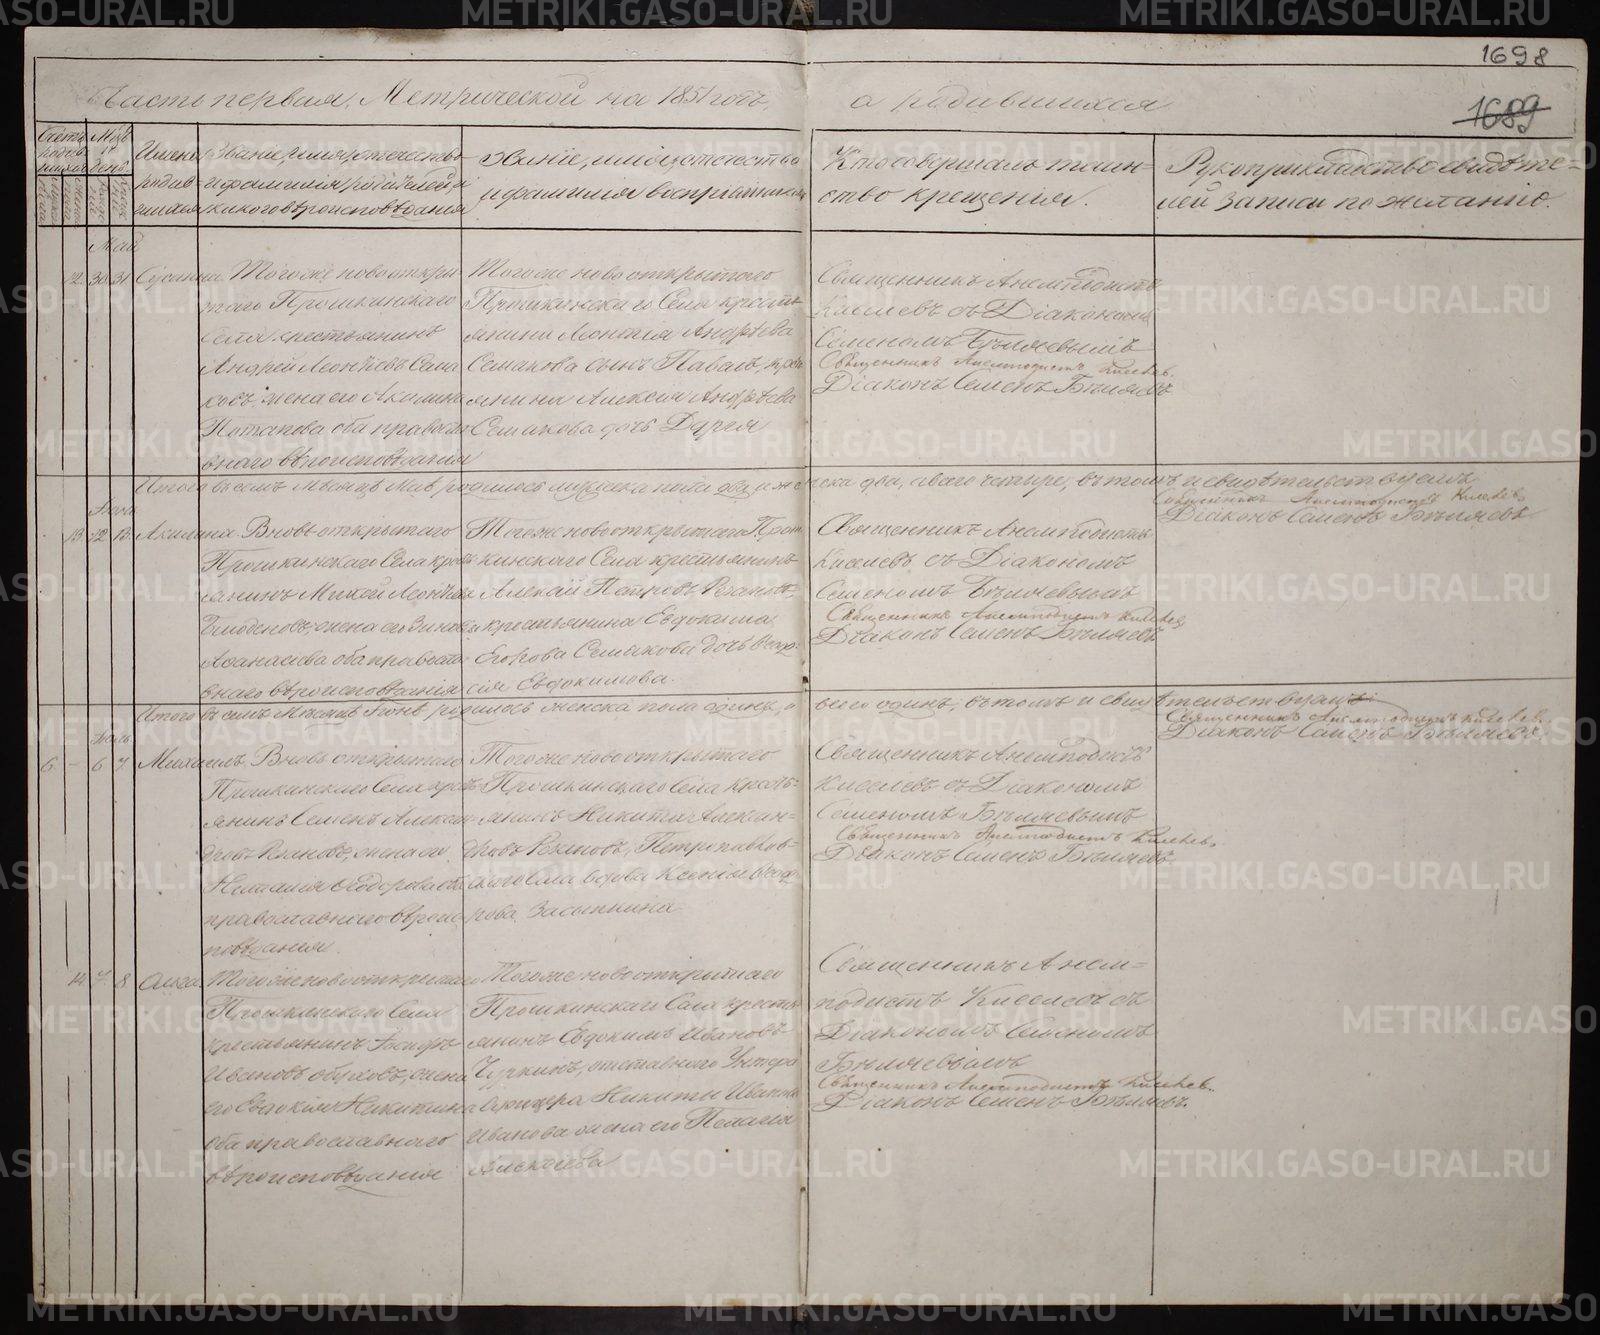 1698
1689
Часть первая, Метрической на 1851 годъ, о родившихся
Имена родив-шихся
Званіе, имя, отечество и фамилія родителей, и какого вѣроисповѣданія
Званіе, имя, отечество и фамилія воспріемниковъ
Кто совершалъ таин-
ство крещенія.
Рукоприкладство свидѣте-
лей записи по желанію.
Май
12 30 31 Сусанна
Тогоже новооткры-
таго Прошкинскаго
Села крестьянинъ
Андрей Леонтіевъ Сема
ковъ, жена его Акилина
Потапова оба православ
внаго вѣроисповѣданія
Тогоже новооткрытаго
Прошкинскаго Села кресть-
янина Леонтія Андрѣева
Семакова сынъ Павелъ, крест
янина Алексія Андрѣева
Семакова дочь Дарья
Священникъ Анемподистъ
Киселевъ съ Діакономъ
Семеномъ Бѣляевымъ
Священникъ Анемподистъ Киселев.
Діаконъ Семенъ Бѣляевъ
Итого въ семъ мѣсяцѣ Маѣ родилось мужеска пола два и женска два, всего четыре, въ томъ и свидѣтельствуемъ
Священникъ Анемподистъ Киселев.
Діаконъ Семенъ Бѣляевъ
13 12 13 Акилина
Вновь открытаго
Прошкинскаго Села крест
янинъ Михей Леонтіев
жена его Зинов
Афанасіева оба правосла
внаго вѣроисповѣданія
Тогоже новооткрытаго Прош
кинскаго Села крестьянинъ
Алексій Петровъ
крестьянина Евдокима
Егорова Семакова дочь Ѳеодо-
сія Евдокимова.
Священникъ Анемподистъ
Киселевъ съ Діакономъ
Семеномъ Бѣляевымъ
Священникъ Анемподистъ Киселев
Діаконъ Семенъ Бѣляевъ
Итого въ семъ Мѣсяцѣ Іюнѣ родилось женска пола одинъ, а всего одинъ, въ томъ и свидѣтельствуемъ
Священникъ Анемподистъ Киселев.
Діаконъ Семенъ Бѣляевъ.
6 – 6 7 Михаилъ
Вновь открытаго
Прошкинскаго Села крест
янинъ Семенъ Алексан
дровъ жена его
Наталія Ѳедорова оба
православнаго вѣроис
повѣданія.
Тогоже новооткрытаго
Прошкинскаго Села кресть-
янинъ Никита Алексан-
дровъ Петропавлов-
скаго Села вдова Ксенья Ѳеодо
рова Засыпкина
Священникъ Анемподистъ
Киселевъ съ Діакономъ
Семеномъ Бѣляевымъ
Священникъ Анемподистъ Киселев.
Діаконъ Семенъ Бѣляевъ
14 7 8 Ольга
Тогоже новооткрытаго
Прошкинскаго Села
крестьянинъ Іосифъ
Ивановъ Обуховъ, жена
его Евдокія Никитина
оба православнаго
вѣроисповѣданія
Тогоже новооткрытаго
Прошкинскаго Села крестья
янинъ Евдокимъ Ивановъ
Чуркинъ, отставнаго Унтеръ
Офицера Никиты Иванова
Иванова жена его Пелагія
Алексѣева
Священникъ Анем-
подистъ Киселевъ съ
Діакономъ Семеномъ
Бѣляевымъ
Священникъ Анемподистъ Киселев.
Діаконъ Семенъ Бѣляевъ.
METRIKI.GASO-URAL.RU